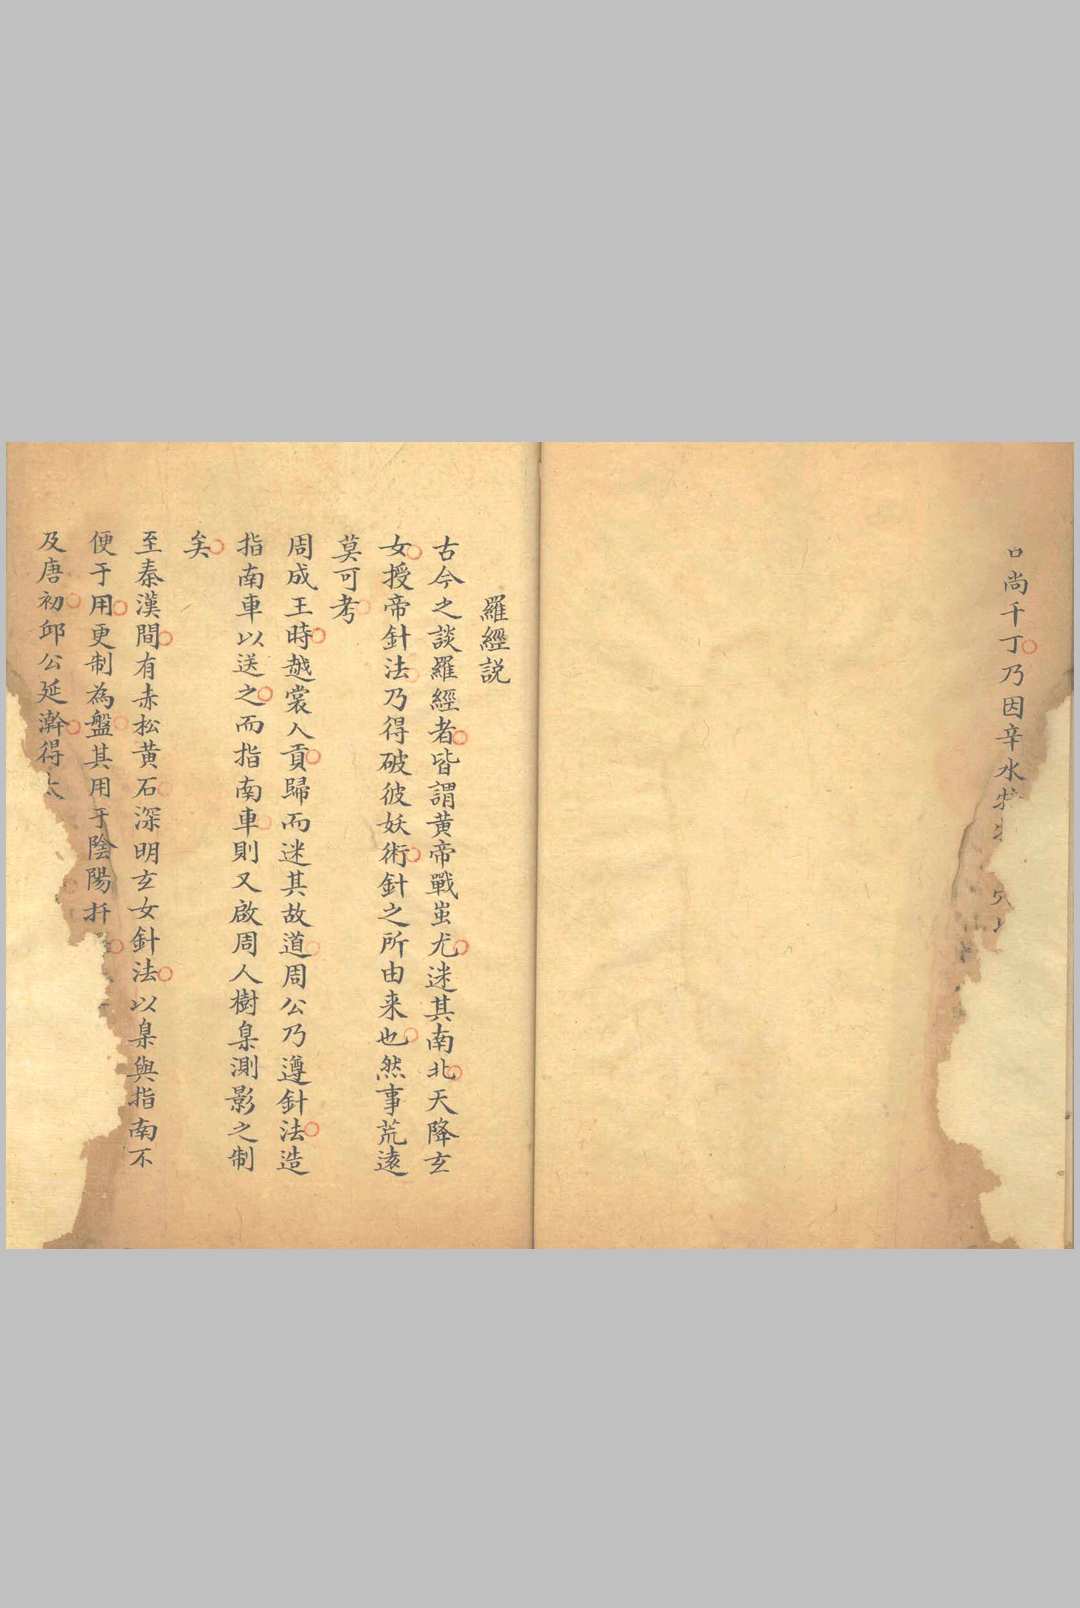 口尚千丁乃因辛水
羅經説
古今之談羅經者皆謂黄帝戰蚩尤迷其南北天降玄
女授帝針法乃得破彼妖術針之所由来也然事荒遠
莫可考
周成王時越裳人貢歸而迷其故道周公乃遵針法造
指南車以送之而指南車則又啟周人樹臬測影之制
矣
至秦漢間有赤松黄石深明玄女針法以臬與指南不
便于用更制為盤其用于陰陽
及唐初邱公延瀚得太